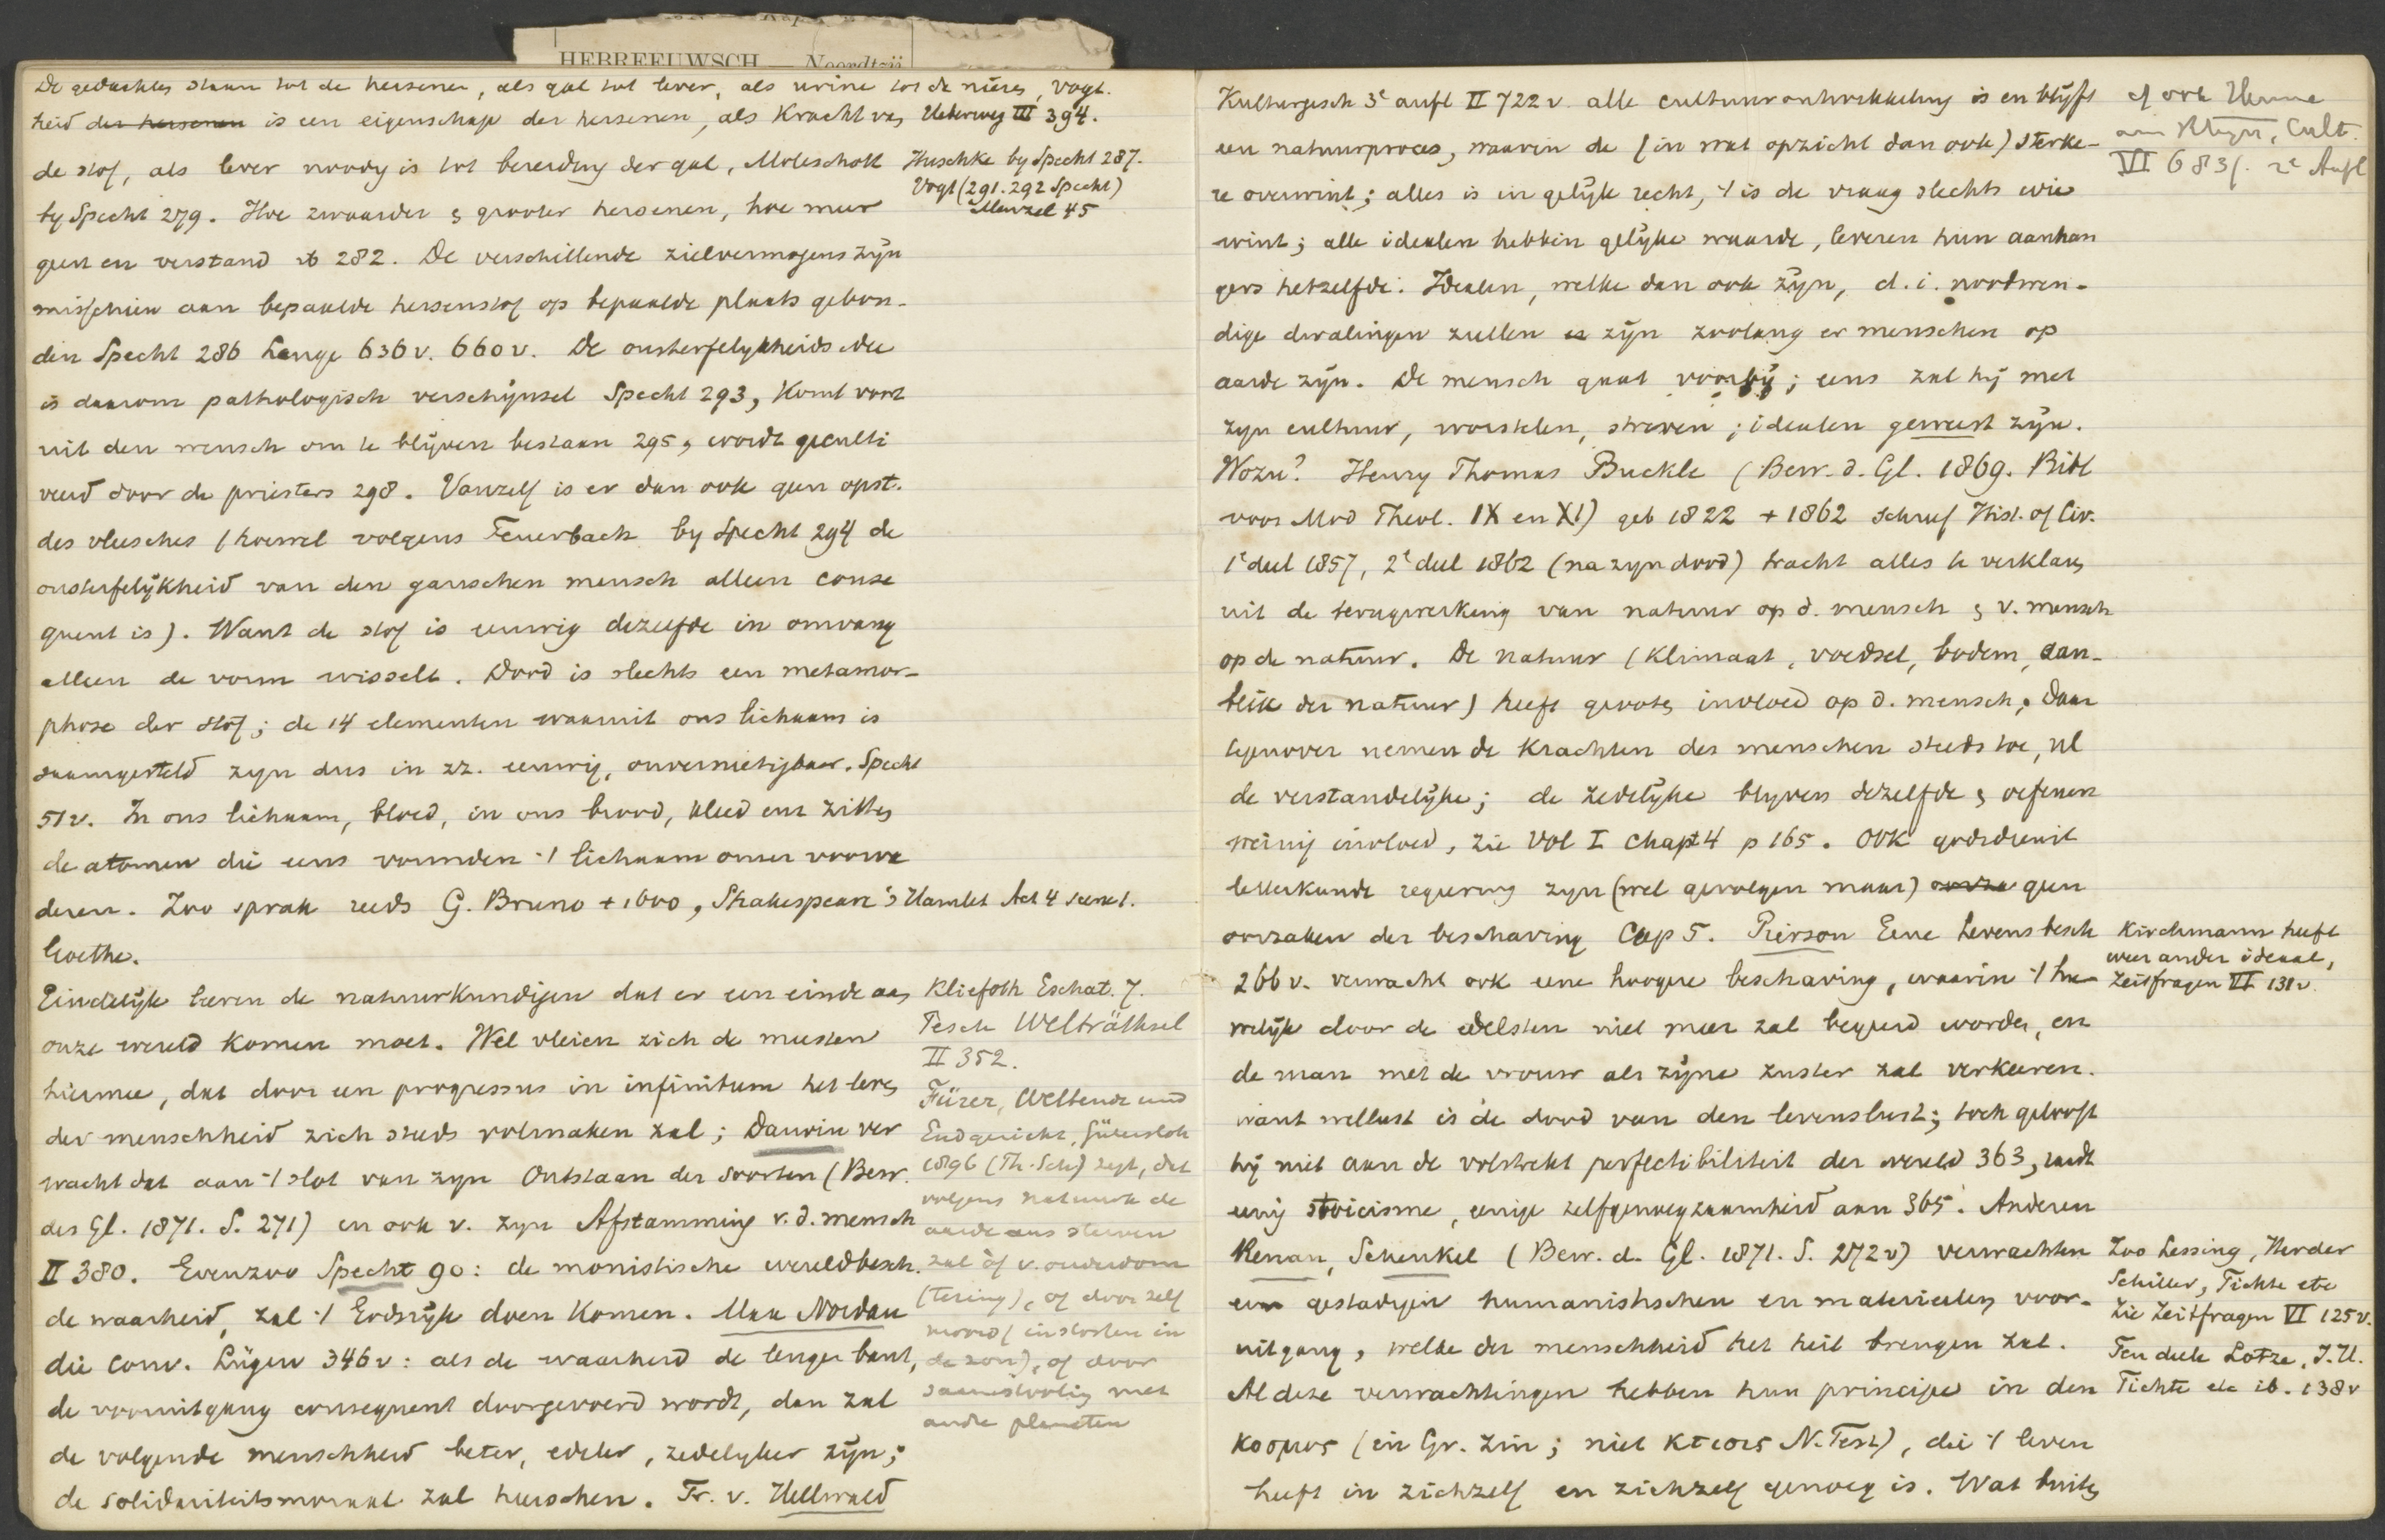 HEBREEUWSCH — Noordtzij
De gedachten staan tot de hersenen, als gal tot lever, als urine tot de nieren, Vogt.
heid der hersenen is een eigenschap der hersenen, als Kracht van Ueberweg III 394.
de stof, als lever noodig is tot bereiding der gal, Moleschott
by Specht 279. Hoe zwaarder & grooter hersenen, hoe meer
geest en verstand ib 282. De verschillende zielvermogens zijn
misschien aan bepaalde hersenstof op bepaalde plaats gebon-
den Specht 286 Lange 636 v. 660 v. De onsterfelykheids idee
is daarom pathologisch verschijnsel Specht 293, Komt voort
uit den wensch om te blijven bestaan 295, wordt geculti
veerd door de priesters 298. Vanzelf is er dan ook geen opst.
des vleesches (hoewel volgens Feuerbach by Specht 294 de
onsterfelijkheid van den ganschen mensch alleen conse
quent is). Want de stof is eeuwig dezelfde in omvang
alleen de vorm wisselt. Dood is slechts een metamor-
phose der stof; de 14 elementen waaruit ons lichaam is
saamgesteld zyn dus in zz. eeuwig, onvernietigbaar. Specht
51 v. In ons lichaam, bloed, in ons brood, kleed enz zitten
de atomen die eens vormden 't lichaam onzer voorva
deren. Zoo sprak reeds G. Bruno + 1600, Shakespeare's Hamlet Act 4 scene 1.
Goethe.
Eindelijk leeren de natuurkundigen dat er een einde aan
onze wereld komen moet. Wel vleien zich de meesten
hiermee, dat door een progressus in infinitum het leven
der menschheid zich steeds volmaken zal; Darwin ver
wacht dat aan 't slot van zyn Ontstaan der soorten (Bew.
des Gl. 1871. S. 271) en ook v. zyn Afstamming v. d. mensch
II 380. Evenzoo Specht 90: de monistische wereldbesch.
de waarheid, zal 't Erdrijk doen Komen. Max Nordau
die conv. Lügen 346 v: als de waarheid de leugen bant,
de vooruitgang consequent doorgevoerd wordt, dan zal
de volgende menschheid beter, edeler, zedelyker zijn;
de solidariteitsmoraal zal heerschen. Fr. v. Hellwald
Huschke by Specht 287.
Vogt (291. 292 Specht)
Menzel 45
Kliefoth Eschat. 7.
Pesch Welträthsel
II 352.
Fürer, Weltende und
Endgericht, Gütersloh
1896 (Th. Sch) zegt, dat
volgens natuurk de
aarde eens sterven
zal òf v. ouderdom
(tering), of door zelf
moord (instorten in
de zon), of door
saamstooting met
andre planeten
Kulturgesch 3e aufl II 722 v. alle cultuurontwikkeling is en blijft
een natuurproces, waarin de (in wat opzicht dan ook) sterke-
re overwint; alles is in gelijk recht, 't is de vraag slechts wie
wint; alle idealen hebben gelijke waarde, leveren hun aanhan
gers hetzelfde. Idealen, welke dan ook zijn, d. i. noodwen-
dige dwalingen zullen er zijn zoolang er menschen op
aarde zijn. De mensch gaat voorbij; eens zal hij met
zyn cultuur, worstelen, streven; idealen geweest zijn.
Wozu? Henry Thomas Buckle (Bew. d. Gl. 1869. Bibl
voor Mod Theol. IX en XI) geb 1822 + 1862 schreef Hist. of Civ.
1e deel 1857, 2e deel 1862 (na zyn dood) tracht alles te verklaren
uit de terugwerking van natuur op d. mensch & v. mensch
op de natuur. De natuur (Klimaat, voedsel, bodem, aan-
blik der natuur) heeft grooten invloed op d. mensch, daar
tegenover nemen de Krachten des menschen steeds toe, nl
de verstandelijke; de zedelijke blyven dezelfde & oefenen
weinig invloed, zie Vol I Chapt 4 p 165. Ook godsdienst
letterkunde regeering zyn (wel gevolgen maar) geen
oorzaken der beschaving Cap 5. Pierson Eene Levensbesch
266 v. verwacht ook eene hoogere beschaving, waarin 't hu-
welijk door de edelsten niet meer zal begeerd worden, en
de man met de vrouw als zijne zuster zal verkeeren.
want wellust is de dood van den levenslust; toch gelooft
hij niet aan de volstrekte perfectibiliteit der wereld 363, raadt
eenig stoicisme, eenige zelfgenoegzaamheid aan 365. Anderen
Renan, Schenkel (Bew. d. Gl. 1871. S. 272 v) verwachten
een gestadigen humanistischen en materieelen voor-
uitgang, welke der menschheid het heil brengen zal.
Al deze verwachtingen hebben hun principe in den
κοσμος (in Gr. zin; niet κτισις N. Test), die 't leven
heeft in zichzelf en zichzelf genoeg is. Wat buiten
cf ook Henne
am Rhyn, Cult.
VI 683f. 2e Aufl
Kirchmann heeft
weer ander ideaal,
Zeitfragen VI 131 v.
Zoo Lessing, Herder
Schiller, Fichte etc
Zie Zeitfragen VI 125 v.
Ten deele Lotze, J. H.
Fichte etc ib. 138 v